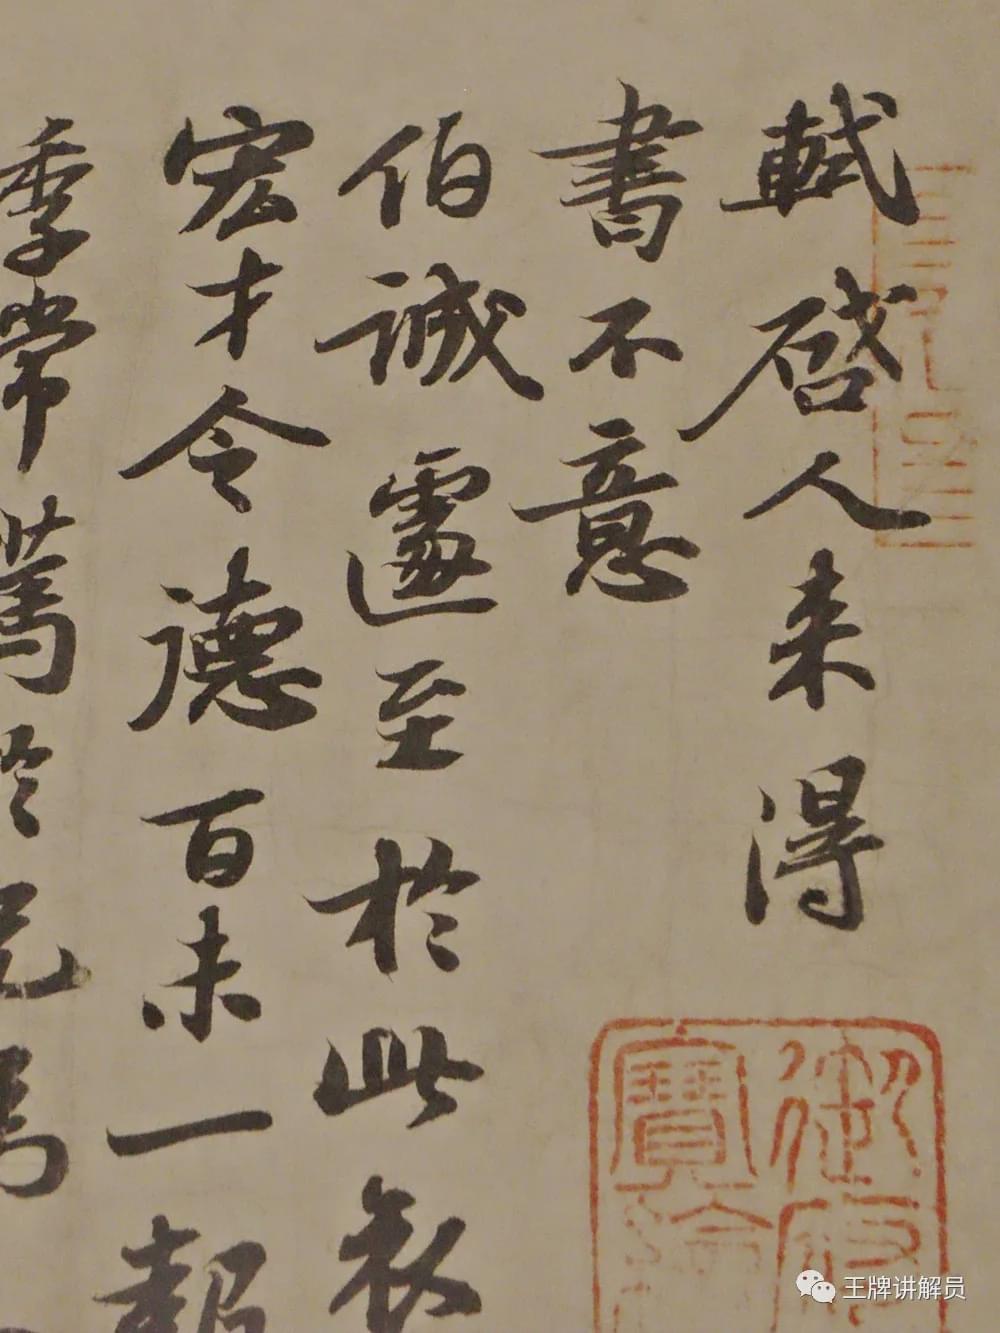 軾啓人来得
書不意
伯誠遽至於此哀
宏才令德百未一報
季常篤於兄弟
御府寶繪
王牌讲解员